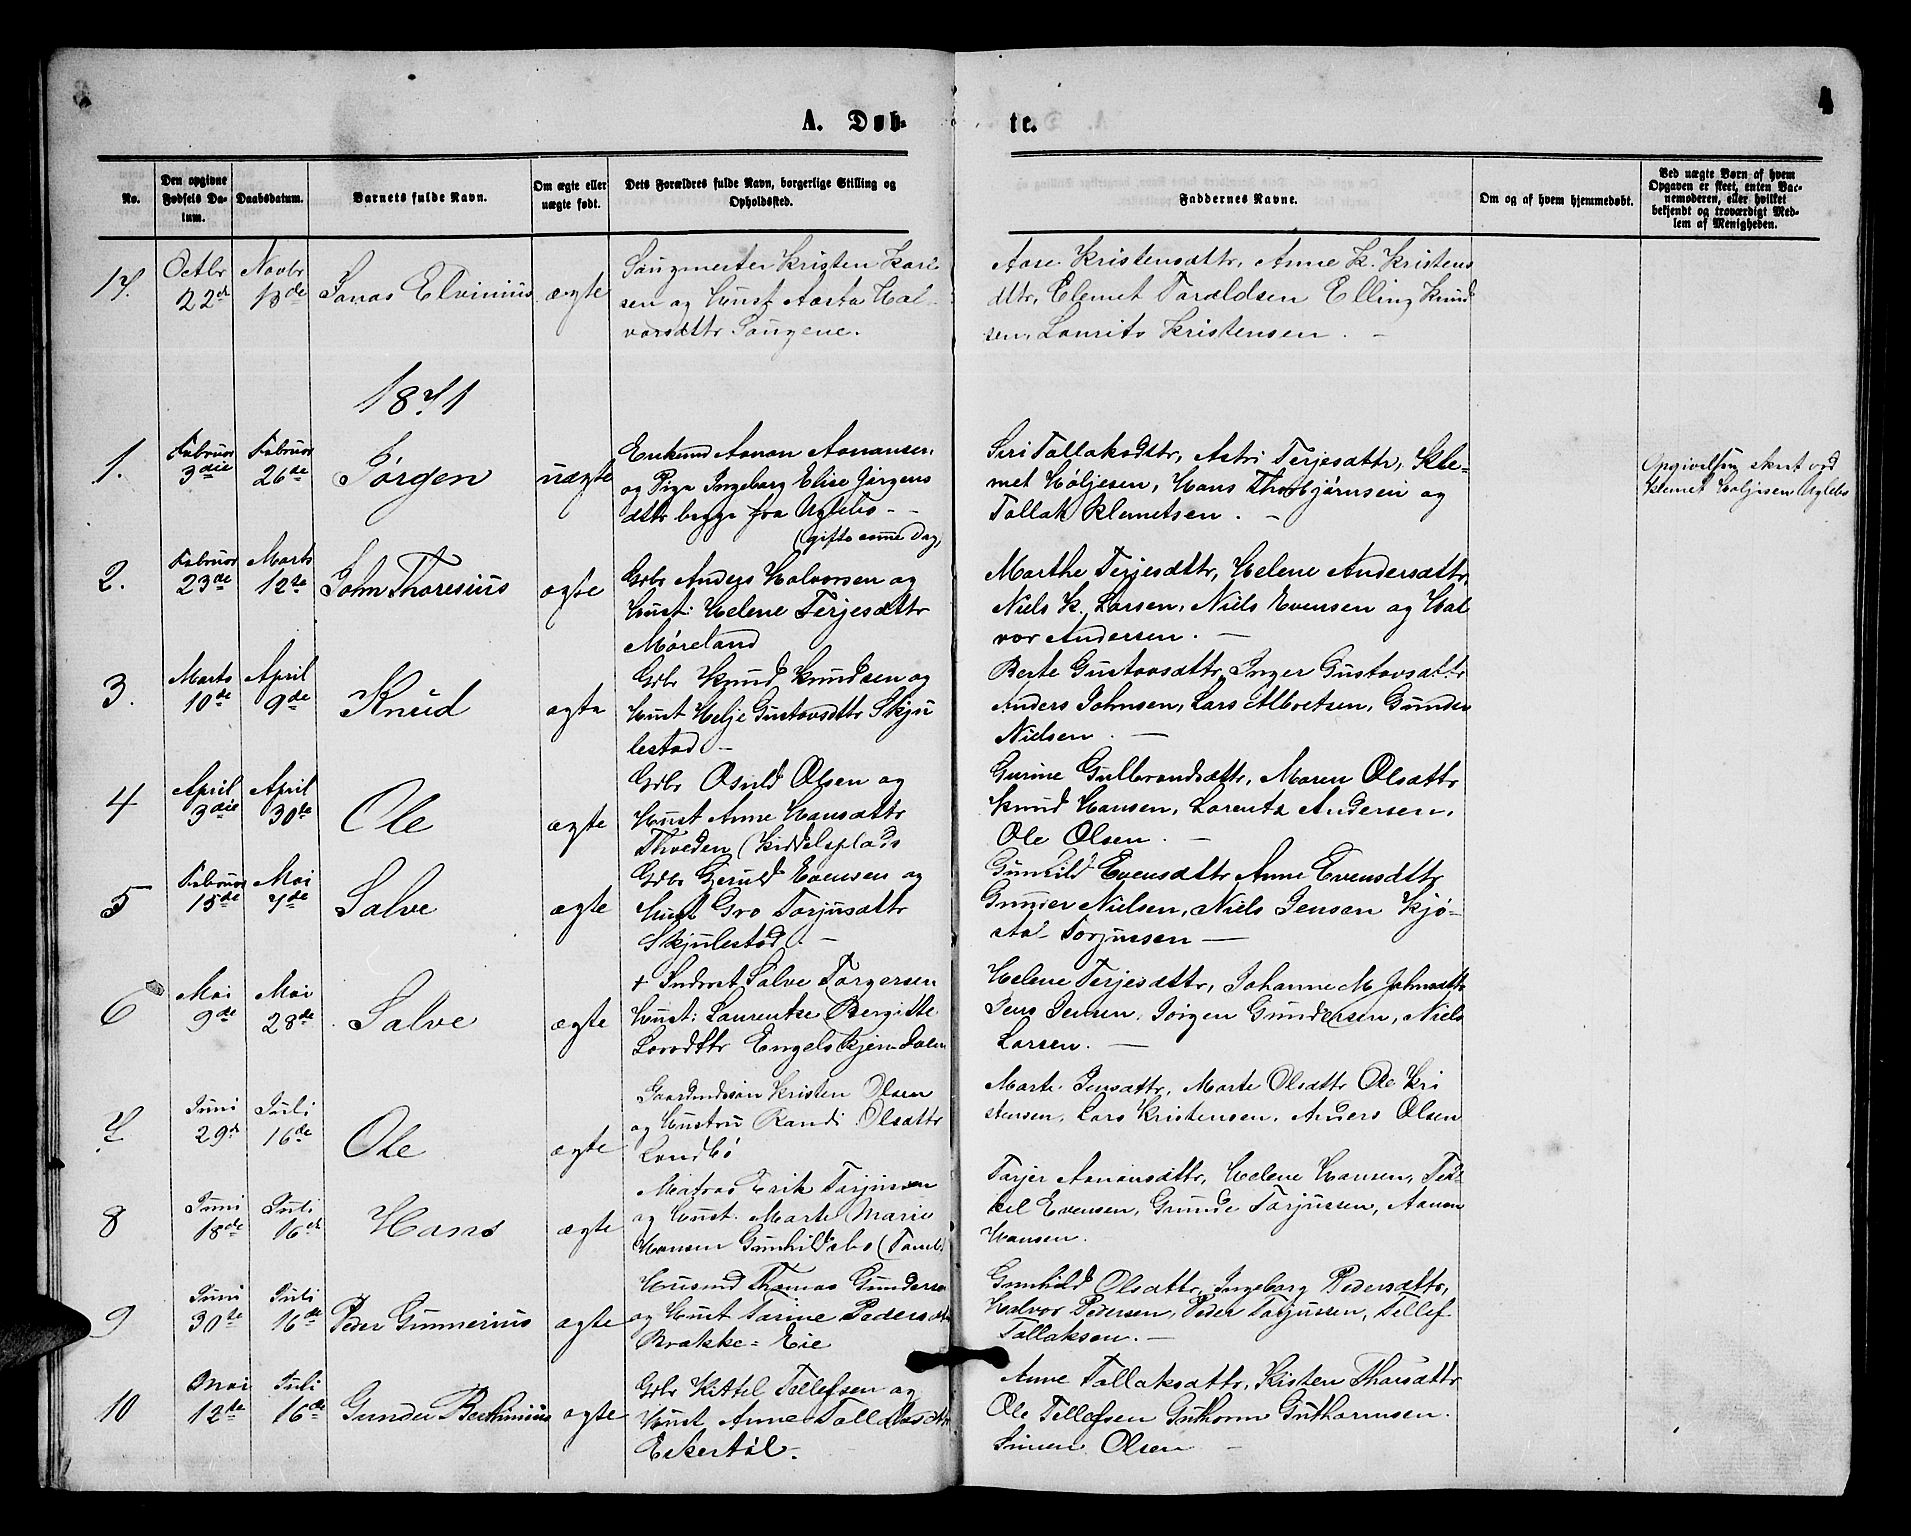 4
A. Døb-
te.
No.
Den opgivne
Fødsels Da-
tum.
Daabsdatum.
Barnets fulde Navn.
Om ægte eller
uægte født.
Dets Forældres fulde Navn, borgerlige Stilling og
Opholdssted.
Faddernes Navne.
Om og af hvem hjemmedøbt.
Ved uægte Børn af hvem
Opgaven er skeet, enten Bar-
nemoderen, eller hvilket
bekjendt og troværdigt Med-
lem af Menigheden.
17.
Octbr
22de
Novbr
13de
Jonas Elvinius
ægte
Saugmester Kristen Kari
sen og Hust Aasta Hal-
vorsdttr Saugene.
Aase Kristensdttr, Anne K. Kristens
dttr, Clemet Taraldsen Elling Knud
sen, Laurits Kristensen. -
1871
1.
Februar
3die
Februar
26de
Jørgen
uægte
Enkemd Aanon Aanonsen.
og Pige Ingeborg Elise Jørgens
dttr begge fra Uglebo - -
(gifte samme Dag,
Siri Tallaksdttr, Astri Terjesdttr, Kle-
met Høljesen, Hans Thorbjørnsen og
Tallak Klemetsen. -
Opgivelsen skeet ved
Klemet Høljesen Uglebo
2.
Februar
23de
Marts
12te
John Thoresius
ægte
Gdbr Anders Halvorsen og
Hust: Helene Terjesdttr
Møreland
Marthe Terjesdttr, Helene Andersdttr,
Niels K. Larsen, Niels Evensen og Hal
vor Andersen. -
3.
Marts
10de
April
9de
Knud
ægte
Gdbr Knud Knudsen og
Hust Helje Gustavsdttr Skju
lestad -
Berte Gustavsdttr, Inger Gustavsdttr
Anders Johnsen, Lars Albretsen, Gunder
Nielsen. -
4
April
3die
April
30te
Ole
ægte
Gdbr Osuld Olsen og
Hust Anne Hansdttr
Thveden (Kiddelsplads
Gurine Gulbrandsdttr, Maren Olsdttr
Knud Hansen, Lorents Andersen,
Ole Olsen. -
5
Februar
15de
Mai
7de
Salve
ægte
Gdbr Gjeruld Evensen og
Hust Gro Torjusdttr
Skjulestad. -
Gunhild Evensdttr Anne Evensdttr
Gunder Nielsen, Niels Jensen Kjø-
stol Torjussen -
6
Mai
9de
Mai
28de
Salve
ægte
+ Inderst Salve Torgersen
Hust: Laurentse Bergitte
Larsdttr Engelskjøndalen
Helene Terjesdttr, Johanne M Johnsdttr
Jens Jensen, Jørgen Gundersen, Niels
Larsen. -
7.
Juni
29d
Juli
16de
Ole
ægte
Gaardmdssøn Kristen Olsen
og Hustru Randi Olsdttr
Landbø
Marte Jensdttr, Marte Olsdttr Ole Kri
stensen, Lars Kristensen, Anders Olsen
8
Juni
18de
Juli
16de
Hans
ægte
Matros Erik Torjussen
og Hust. Marte Marie
Hansen Gunhildsbo
Tarjer Aanonsdttr, Helene Hansen, Ted-
kel Evensen, Grunde Torjussen, Aanon
Hansen.
9
Juni
30te
Juli
16de
Peder Gunnerius
ægte
Husmd Thomas Gundersen
og Hust Tarine Pedersdttr
Brække=Eie
Gunhild Olsdttr, Ingeborg Pedersdttr,
Halvor Pedersen, Peder Torjussen, Tellef
Tallaksen. -
10
Mai
12te
Juli
16de
Gunder Berthinius
ægte
Gdbr Kittel Tellefsen og
Hust Anne Tallaksdttr
Eskertøl-
Anne Tallaksdttr, Kisten Thorsdttr
Ole Tellefsen Guthorm Guthormsen.
Simen Olsen -